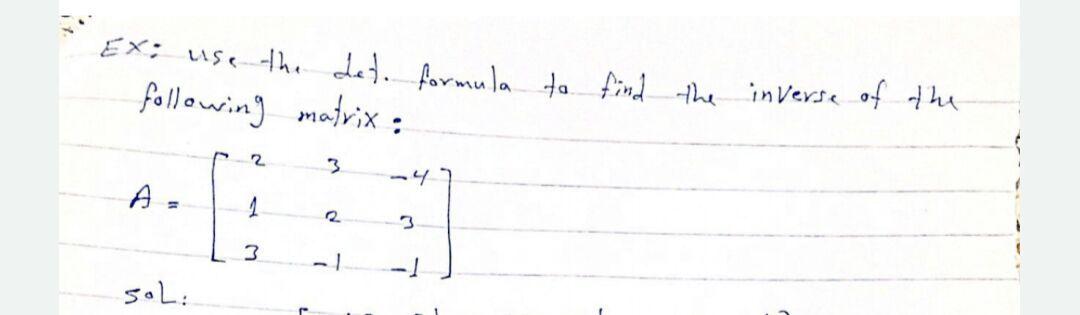 EX: use the det. formula to find the inverse of the
following matrix:
A = [ 2 3 -4
1 2 3
3 -1 -1 ]
soL: